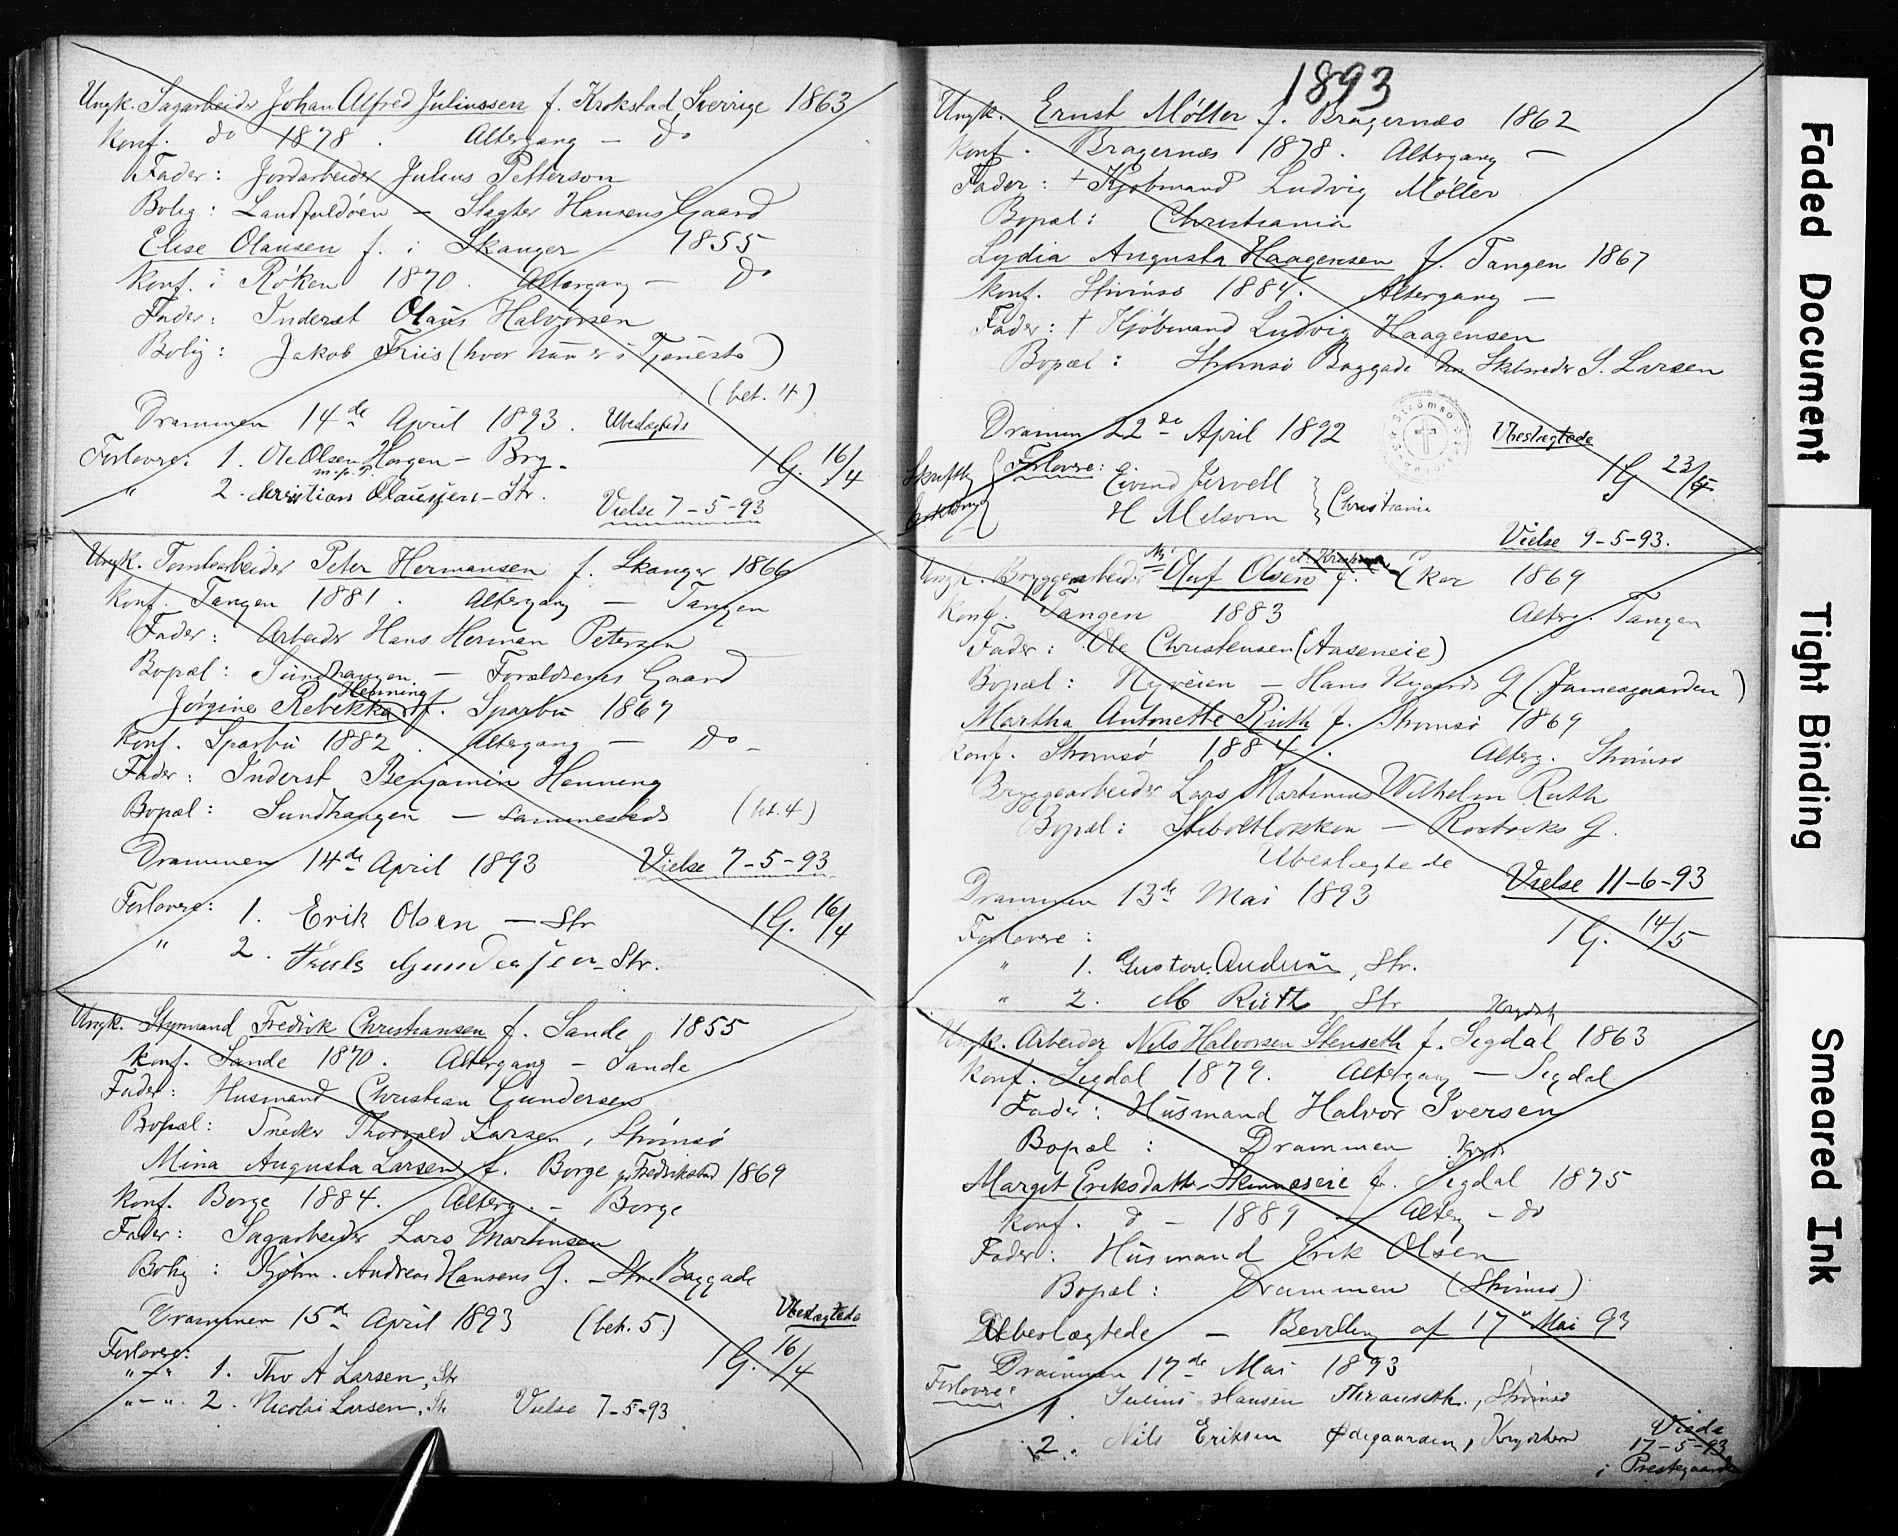 Ungk. Sagarbeider Johan Alfred Juliussen f. Krokstad Sverrige 1863
Konf. do 1878. Altergang – do
Fader: Jordarbeider Julius Petterson
Bolig: Landfaldøen – Slagter Hansens Gaard
Elise Olausen f. i Skanger 1855
Konf. i Røken 1870. Altergang – do
Fader: Inderst Olaus Halvorsen
Bolig: Jakob Friis (hvor hun er i Tjeneste)
(bet. 4)
Drammen 14de April 1893. Ubeslægtede
Forlovere: 1. Ole Olsen Horgen – Brg. 1 G. 16/4
m.p.P.
" 2. Christian Olaussen – Str. Vielse 7-5-93
Ungk. Tomtearbeider Peter Hermansen f. Skanger 1866
Konf. Tangen 1881. Altergang – Tangen
Fader: Arbeider Hans Herman Petersen
Bopæl: Sundhaugen – Forældrenes Gaard
Henning
Jørgine Rebekka f. Sparbu 1867
Konf. Sparbu 1882. Altergang – do –
Fader: Inderst Benjamin Henning
Bopæl: Sundhaugen – sammesteds (bet. 4)
Drammen 14de April 1893 Vielse 7-5-93
Forlovere: 1. Erik Olsen – Str 1 G. 16/4
" 2. Gundersen – Str.
Ungk. Styrmand Fredrik Christiansen f. Sande 1855
Konf. Sande 1870. Altergang – Sande
Fader: Husmand Christian Gundersen
Bopæl: Snedker Thorvald Larsen, Strømsø
Mina Augusta Larsen f. Borge pr Fredrikstad 1869
Konf. Borge 1884. Alterg. – Borge
Fader: Sagarbeider Lars Martinsen
Bolig: Kjøbm. Andreas Hansens G. – Str. Baggade
Drammen 15de April 1893 (bet. 5) Ubeslægtede
Forlovere: 1 G. 16/4
"–" 1. Tho A Larsen, Str
"–" 2. Nicolai Larsen, Str Vielse 7-5-93
1893
Ungk. Ernst Møller f. Bragernæs 1862
Konf. Bragernæs 1878. Altergang –
Fader: † Kjøbmand Ludvig Møller
Bopæl: Christiania
Lydia Augusta Haagensen f. Tangen 1867
Konf. Strømsø 1884. Altergang –
Fader: † Kjøbmand Ludvig Haagensen
Bopæl: Strømsø Baggade hos Skibsreder S. Larsen
Drammen 22de April 1892 Ubeslægtede
Strømsø
Skriftlig Forlovere: Eivind Jervell 1 G 23/4
Erklæring H Melsom Christiania
Vielse 9-5-93.
Ungk. Bryggearbeider Oluf Olsen f. 1869
Konf. Tangen 1883 Alterg. Tangen
Fader: Ole Christensen (Aaseneie)
Bopæl: Nyveien – Hans Nygaards G (Jamesgaarden)
Martha Antonette Ruth f. Strømsø 1869
Konf. Strømsø 1884. Alterg. Strømsø
Bryggearbeider Lars Martinius Wilhelm Ruth
Bopæl: – G.
Ubeslægtede
Drammen 13de Mai 1893 Vielse 11-6-93
Forlovere: 1 G. 14/5
" 1. Gustav Andersen, Str.
" 2. M Ruth, Str
Ungk. Arbeider Nils Halvorsen Stenseth f. Sigdal 1863
Konf. Sigdal 1879. Altergang – Sigdal
Fader: Husmand Halvor Iversen
Bopæl: Drammen
Margit Eriksdatter Skinneseie f. Sigdal 1875
Konf. d – 1889 – Alterg – do
Fader: Husmand Erik Olsen
Bopæl: Drammen (Strømsø)
Ubeslægtede – Bevilling af 17 Mai 93
Drammen 17de Mai 1893
Forlovere:
1. Julius Hansen, Strømsø
2. Nils Eriksen Ødegaarden, Krydsherred
Viede
17-5-93
i Prestegaarden
Faded Document
Tight Binding
Smeared Ink